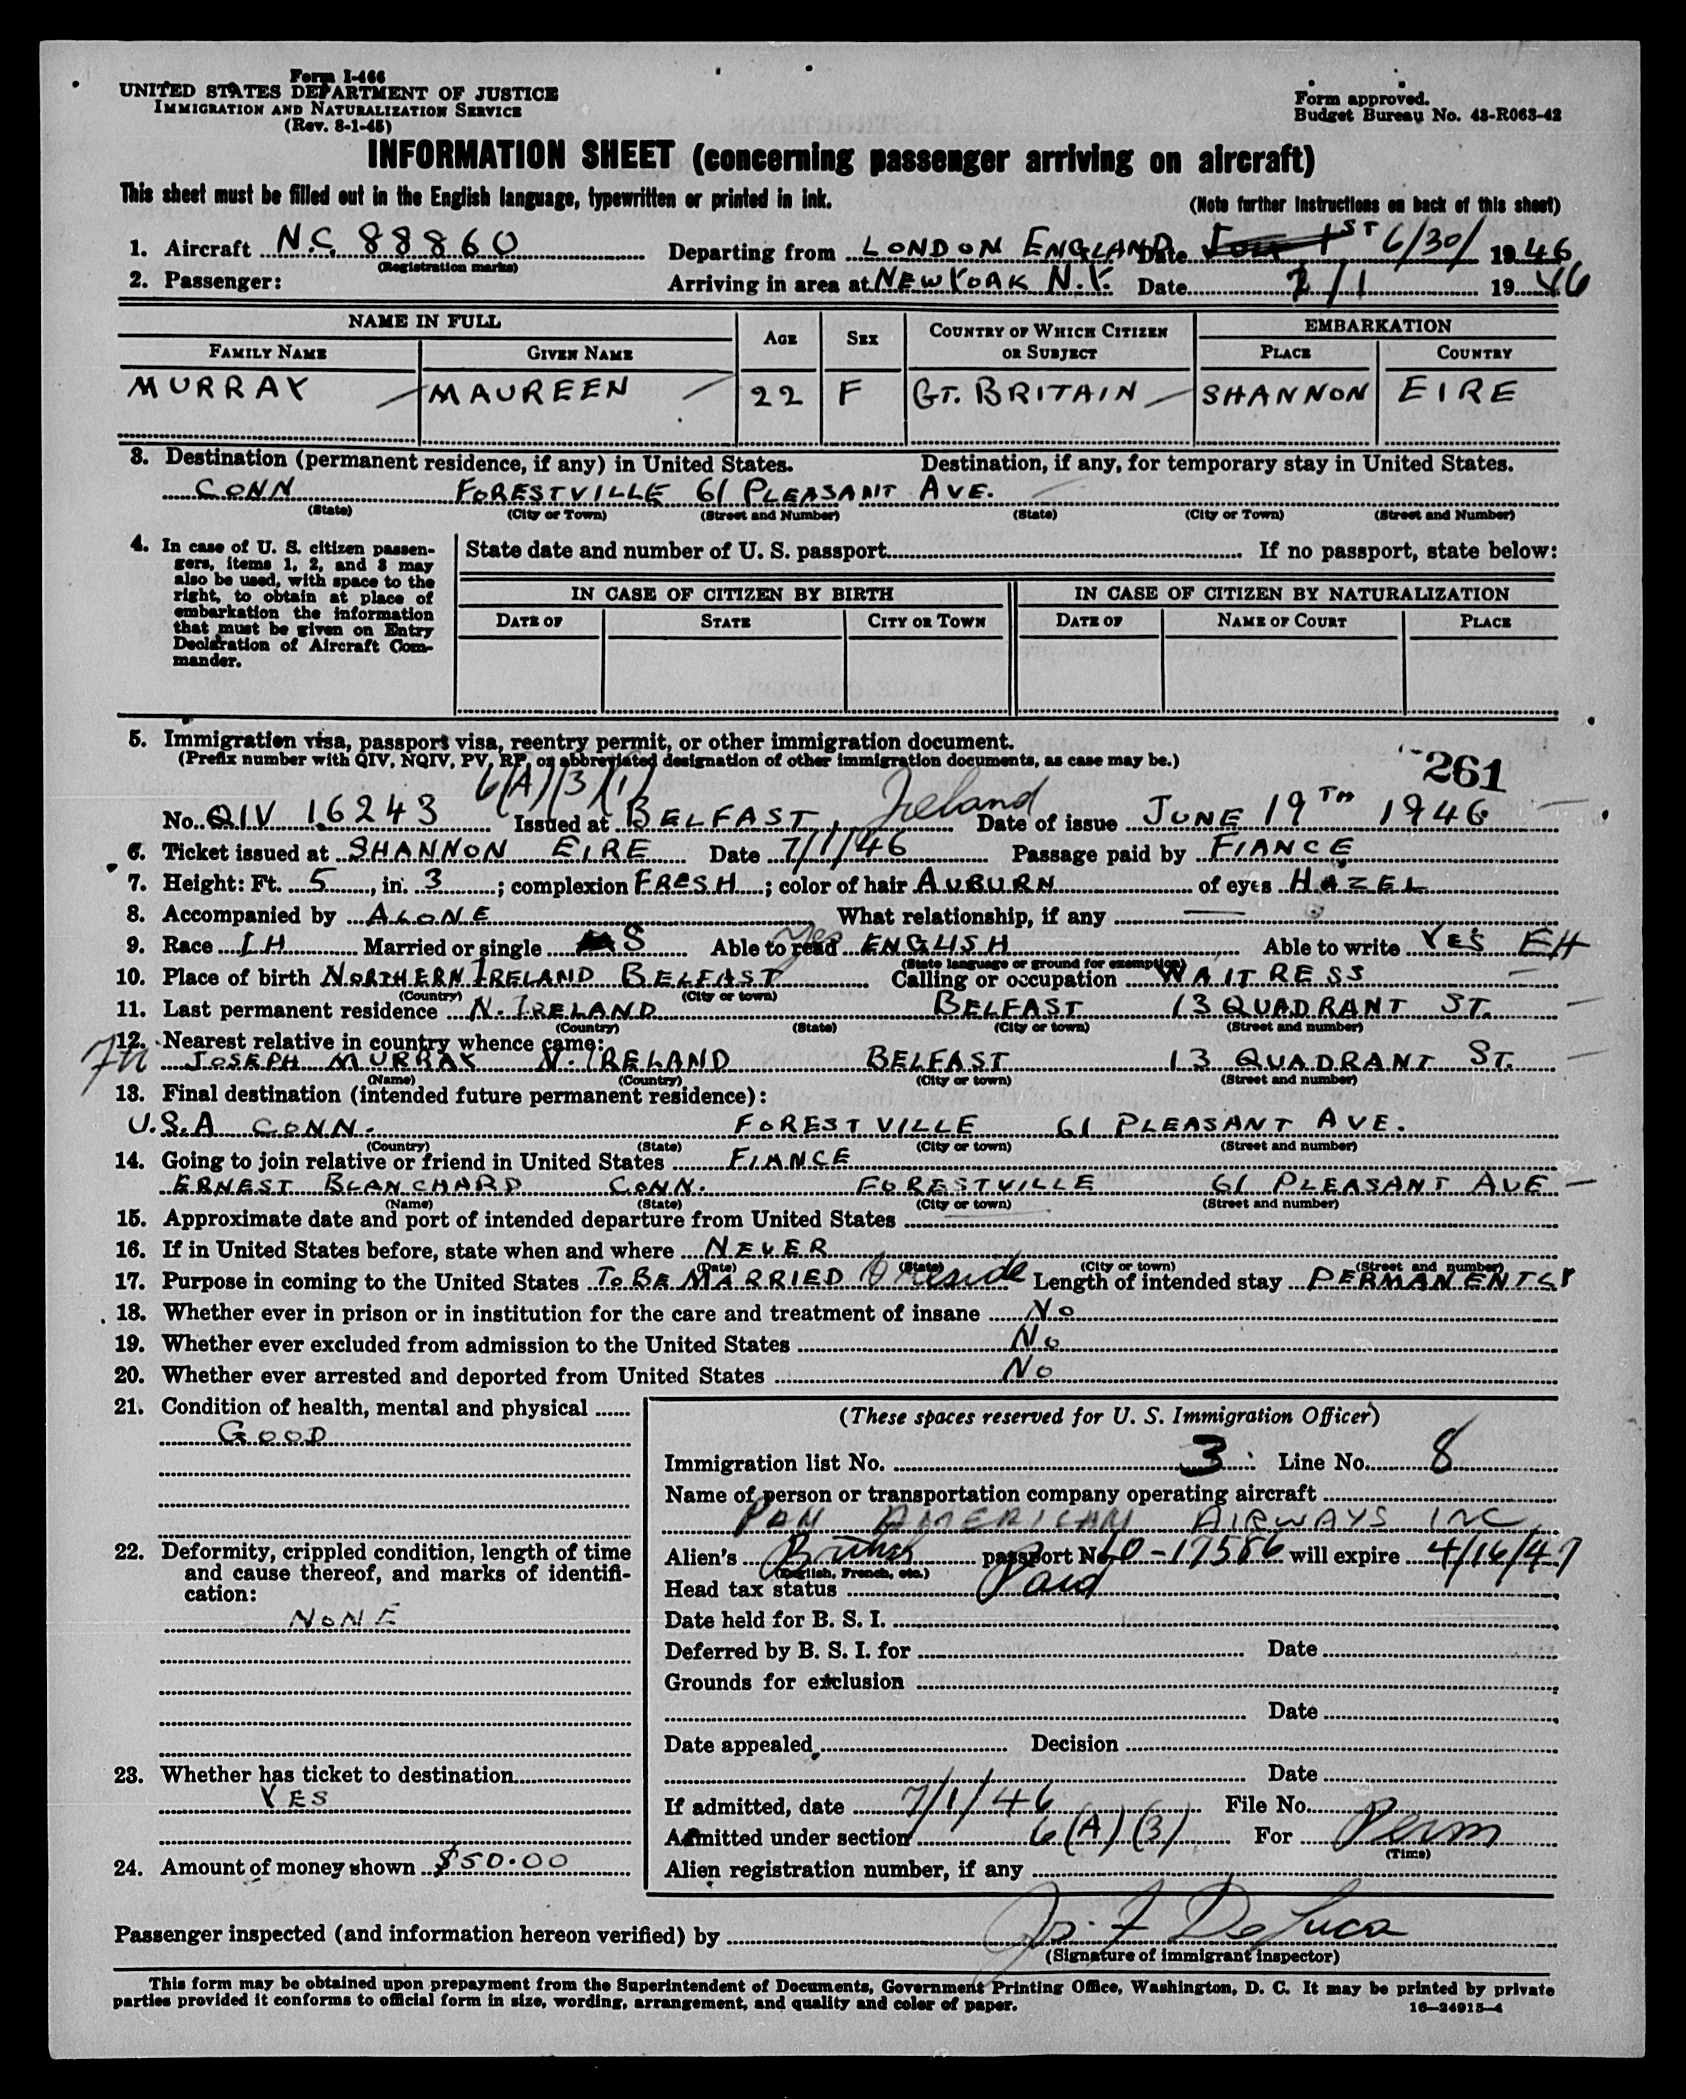 Form I-466
UNITED STATES DEPARTMENT OF JUSTICE
IMMIGRATION AND NATURALIZATION SERVICE
(Rev. 8-1-45)
Form approved.
Budget Bureau No. 43-R063-42
INFORMATION SHEET (concerning passenger arriving on aircraft)
This sheet must be filled out in the English language, typewritten or printed in ink.
(Note further instructions on back of this sheet)
1. Aircraft N.C. 88860 Departing from LONDON ENGLAND Date 1ST 6/30/ 1946
(Registration marks)
2. Passenger: Arriving in area at NEW YORK N.Y. Date 7/1 1946
NAME IN FULL AGE SEX COUNTRY OF WHICH CITIZEN OR SUBJECT EMBARKATION
FAMILY NAME GIVEN NAME PLACE COUNTRY
MURRAY MAUREEN 22 F GT. BRITAIN SHANNON EIRE
3. Destination (permanent residence, if any) in United States. Destination, if any, for temporary stay in United States.
CONN FORESTVILLE 61 PLEASANT AVE.
(State) (City or Town) (Street and Number) (State) (City or Town) (Street and Number)
4. In case of U. S. citizen passen-
gers, items 1, 2, and 3 may
also be used, with space to the
right, to obtain at place of
embarkation the information
that must be given on Entry
Declaration of Aircraft Com-
mander.
State date and number of U. S. passport If no passport, state below:
IN CASE OF CITIZEN BY BIRTH IN CASE OF CITIZEN BY NATURALIZATION
DATE OF STATE CITY OR TOWN DATE OF NAME OF COURT PLACE
5. Immigration visa, passport visa, reentry permit, or other immigration document.
(Prefix number with QIV, NQIV, PV, RP, or abbreviated designation of other immigration documents, as case may be.)
261
6(A)(3)(1)
No. QIV 16243 Issued at BELFAST, Ireland Date of issue JUNE 19TH 1946
6. Ticket issued at SHANNON EIRE Date 7/1/46 Passage paid by FIANCE
7. Height: Ft. 5, in. 3; complexion FRESH; color of hair AUBURN of eyes HAZEL
8. Accompanied by ALONE What relationship, if any —
9. Race IH Married or single S Able to read Yes ENGLISH Able to write YES EH
(State language or ground for exemption)
10. Place of birth NORTHERN IRELAND BELFAST Calling or occupation WAITRESS
(Country) (City or town)
11. Last permanent residence N. IRELAND BELFAST 13 QUADRANT ST.
(Country) (State) (City or town) (Street and number)
12. Nearest relative in country whence came:
JOSEPH MURRAY N. IRELAND BELFAST 13 QUADRANT ST.
(Name) (Country) (City or town) (Street and number)
13. Final destination (intended future permanent residence):
U.S.A CONN. FORESTVILLE 61 PLEASANT AVE.
(Country) (State) (City or town) (Street and number)
14. Going to join relative or friend in United States FIANCE
ERNEST BLANCHARD CONN. FORESTVILLE 61 PLEASANT AVE
(Name) (State) (City or town) (Street and number)
15. Approximate date and port of intended departure from United States
16. If in United States before, state when and where NEVER
(Date) (State) (City or town) (Street and number)
17. Purpose in coming to the United States TO BE MARRIED reside Length of intended stay PERMANENTLY
18. Whether ever in prison or in institution for the care and treatment of insane NO
19. Whether ever excluded from admission to the United States NO
20. Whether ever arrested and deported from United States NO
21. Condition of health, mental and physical
GOOD
22. Deformity, crippled condition, length of time
and cause thereof, and marks of identifi-
cation:
NONE
23. Whether has ticket to destination
YES
24. Amount of money shown $50.00
(These spaces reserved for U. S. Immigration Officer)
Immigration list No. 3 Line No. 8
Name of person or transportation company operating aircraft
PAN AMERICAN AIRWAYS INC
Alien's British passport No. O-17586 will expire 4/16/47
(English, French, etc.)
Head tax status Paid
Date held for B. S. I.
Deferred by B. S. I. for Date
Grounds for exclusion
Date
Date appealed Decision
Date
If admitted, date 7/1/46 File No.
Admitted under section 6(A)(3) For Perm
(Time)
Alien registration number, if any
Passenger inspected (and information hereon verified) by Jos. F. DeLuca
(Signature of immigrant inspector)
This form may be obtained upon prepayment from the Superintendent of Documents, Government Printing Office, Washington, D. C. It may be printed by private
parties provided it conforms to official form in size, wording, arrangement, and quality and color of paper.
16—24915-4